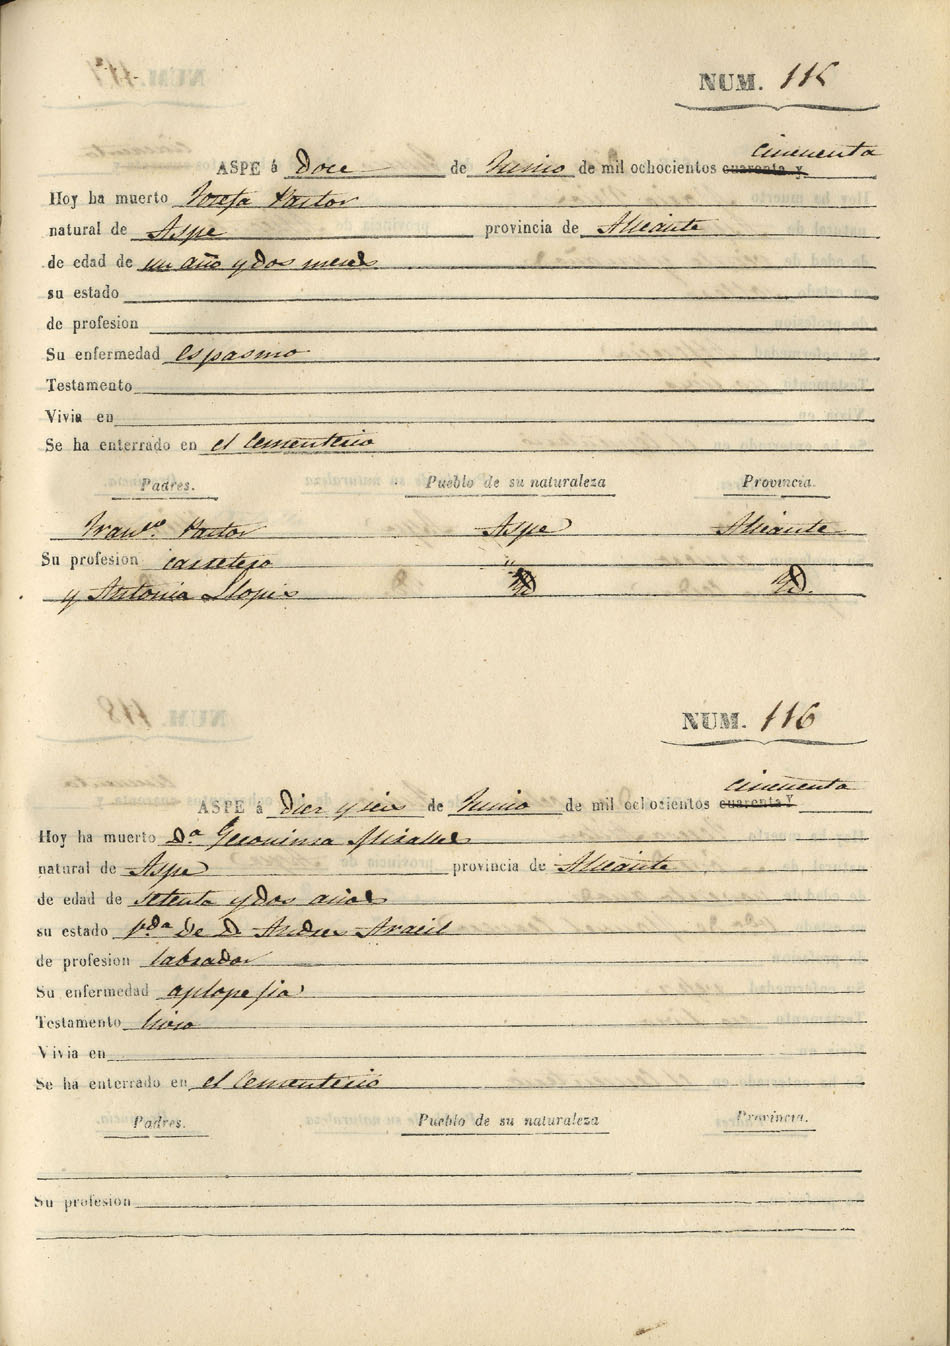 NUM. 115
ASPE á Doce de Junio de mil ochocientos cuarenta y cincuenta
Hoy ha muerto Josefa Pastor
natural de Aspe provincia de Alicante
de edad de un año y dos meses
su estado
de profesion
Su enfermedad espasmo
Testamento
Vivia en
Se ha enterrado en el Cementerio
Padres. Pueblo de su naturaleza Provincia.
Franco. Pastor Aspe Alicante
Su profesion carretero
y Antonia Llopis
NUM. 116
ASPE á Diez y seis de Junio de mil ochocientos cuarenta y cincuenta
Hoy ha muerto Da Geronima Miralles
natural de Aspe provincia de Alicante
de edad de setenta y dos años
su estado Vda de D. Andres Aracil
de profesion labrador
Su enfermedad aplopejia
Testamento
Vivia en
Se ha enterrado en el Cementerio
Padres. Pueblo de su naturaleza Provincia.
Su profesion